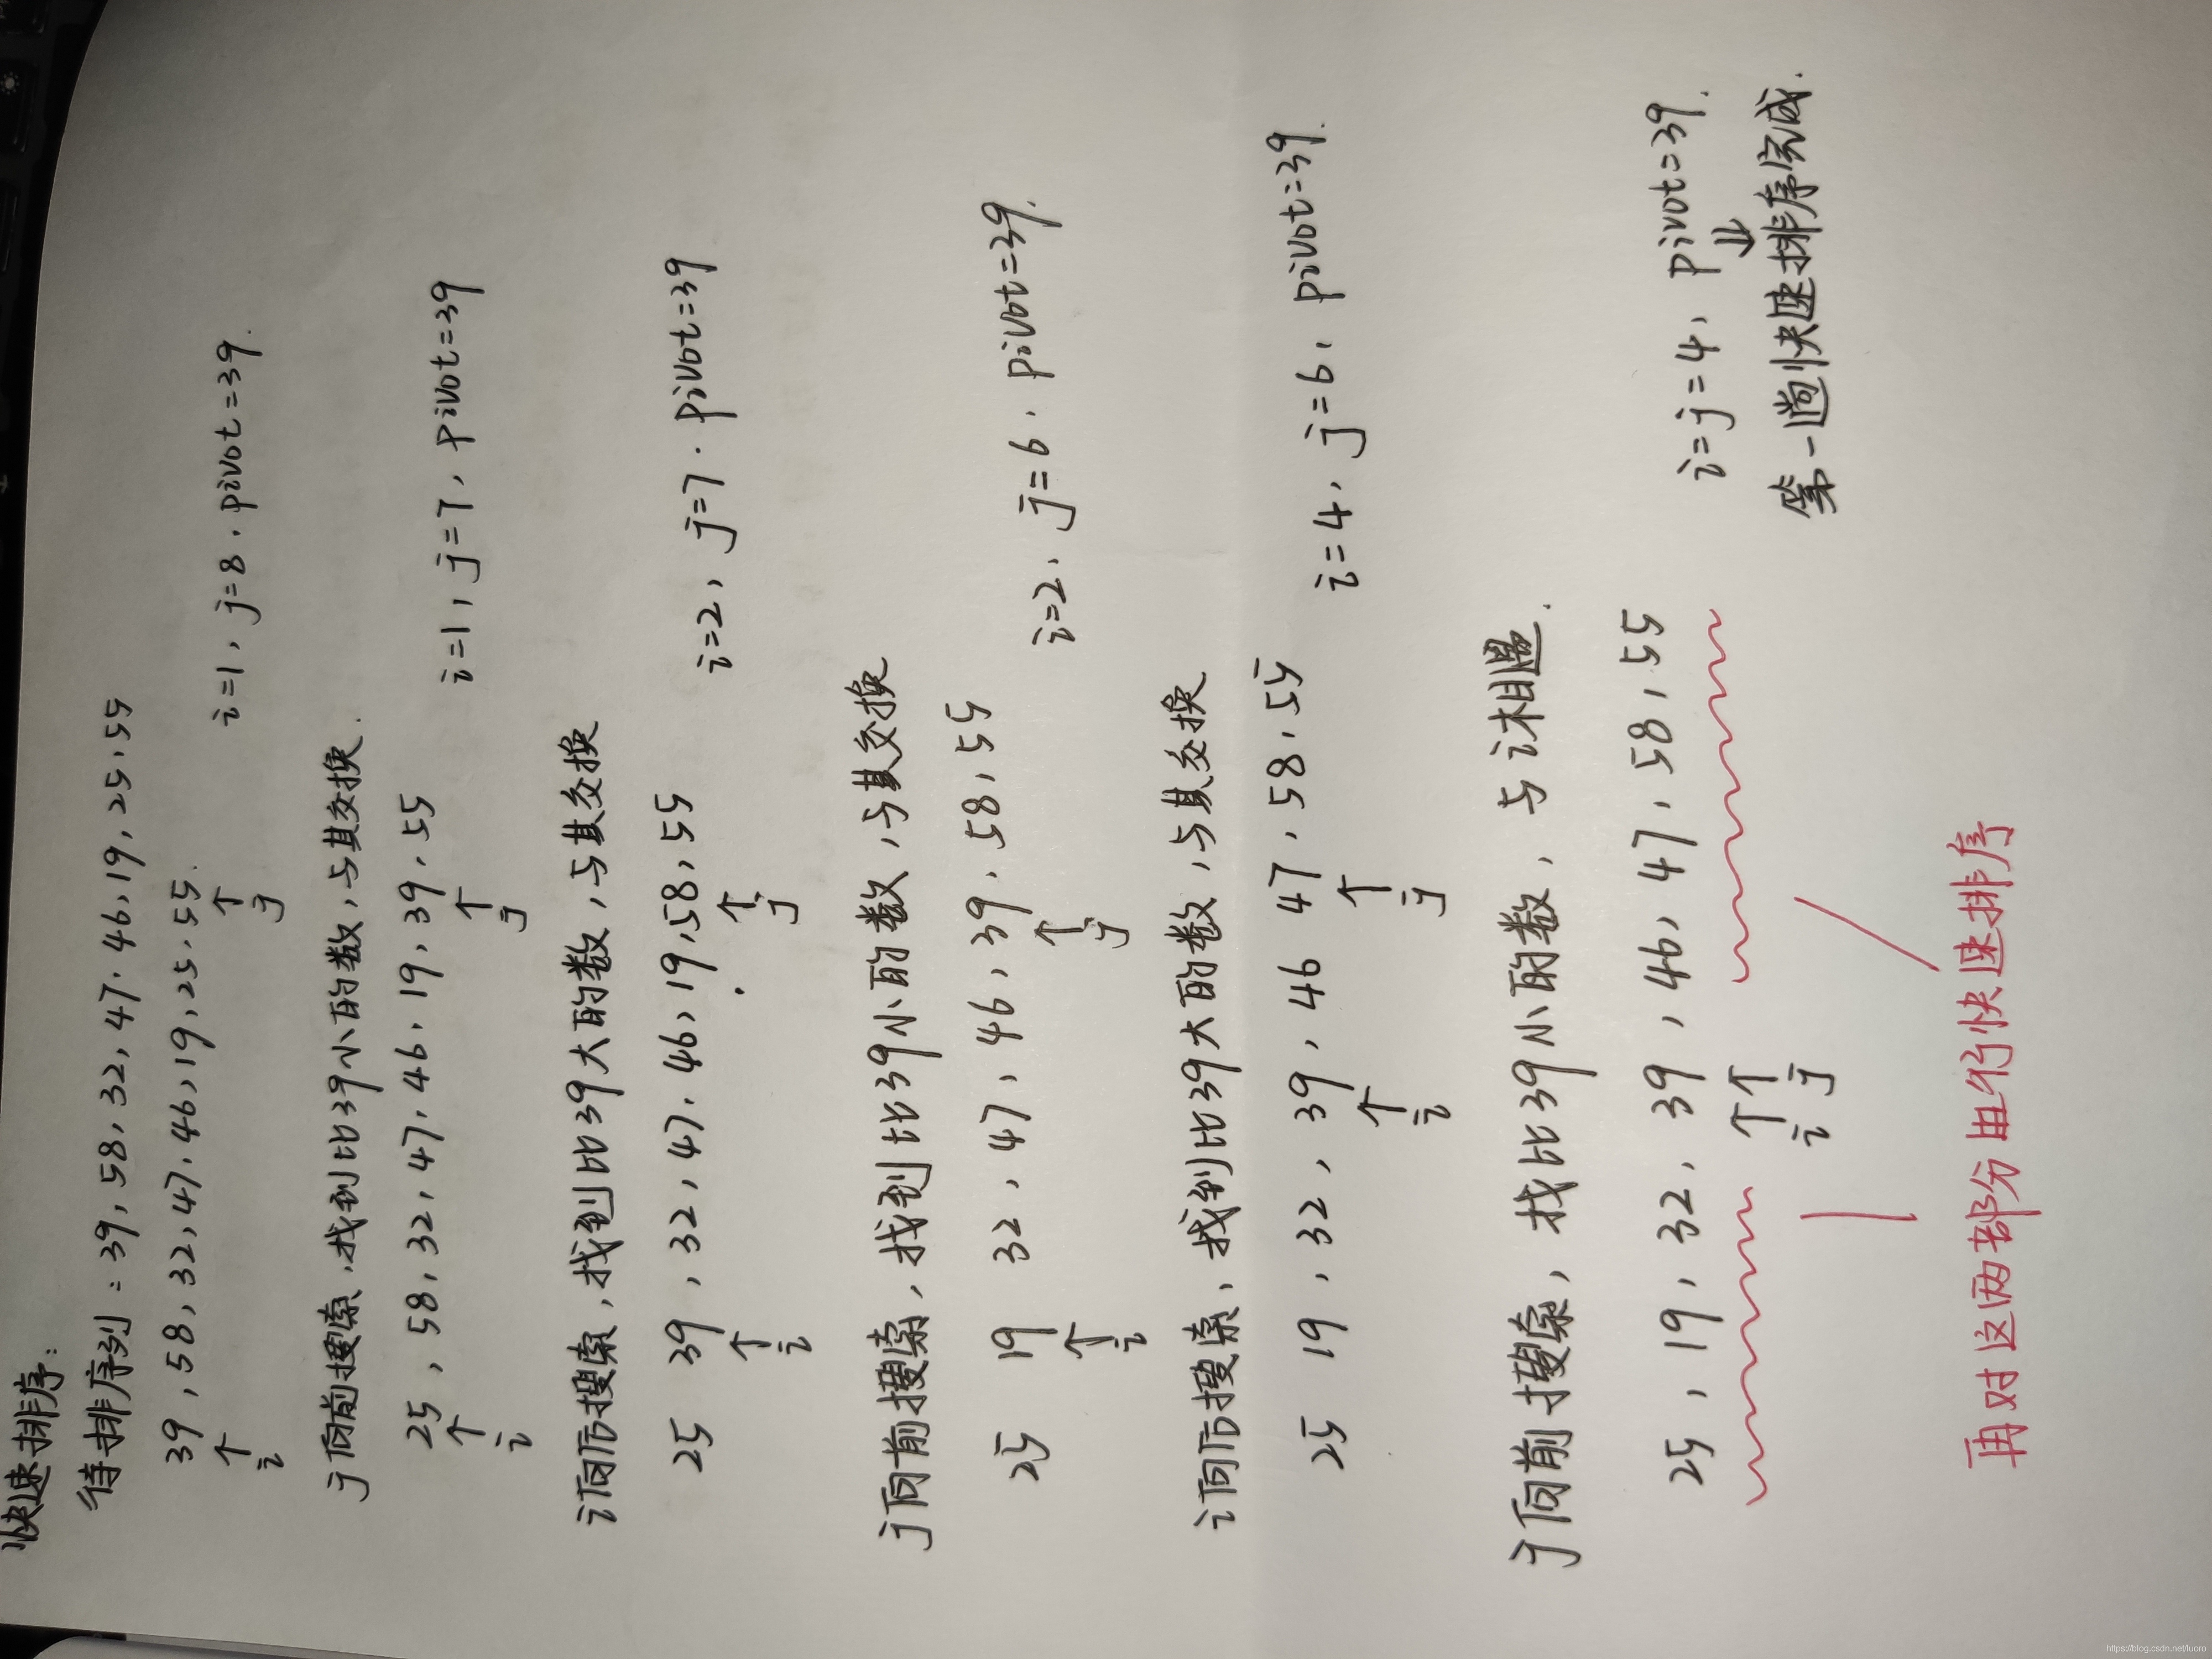 快速排序:
待排序列: 39, 58, 32, 47, 46, 19, 25, 55
39, 58, 32, 47, 46, 19, 25, 55.
↑ ↑
i j
i=1, j=8, pivot=39.
j向前搜索,找到比39小的数,与其交换.
25, 58, 32, 47, 46, 19, 39, 55
↑ ↑
i j
i=1, j=7, pivot=39
i向后搜索,找到比39大的数,与其交换
25 39, 32, 47, 46, 19, 58, 55
↑ ↑
i j
i=2, j=7. pivot=39
j向前搜索,找到比39小的数,与其交换
25 19 32, 47, 46, 39, 58, 55
↑ ↑
i j
i=2, j=6. pivot=39.
i向后搜索,找到比39大的数,与其交换
25 19, 32, 39, 46 47, 58, 55
↑ ↑
i j
i=4, j=6, pivot=39.
j向前搜索,找比39小的数,与i相遇.
25, 19, 32, 39, 46, 47, 58, 55
↑ ↑
i j
i=j=4, pivot=39.
⇓
第一趟快速排序完成.
再对这两部分进行快速排序
https://blog.csdn.net/luoro